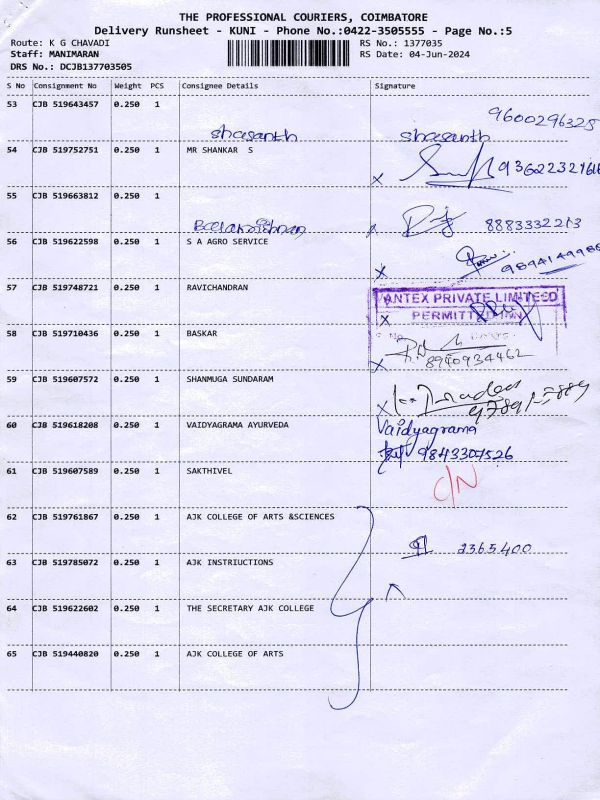 THE PROFESSIONAL COURIERS, COIMBATORE
Delivery Runsheet - KUNI - Phone No.:0422-3505555 - Page No.:5
Route: K G CHAVADI RS No.: 1377035
Staff: MANIMARAN RS Date: 04-Jun-2024
DRS No.: DCJB137703505
S No Consignment No Weight PCS Consignee Details Signature
53 CJB 519643457 0.250 1
9600296325
shasanth shasanth
54 CJB 519752751 0.250 1 MR SHANKAR S
x
55 CJB 519663812 0.250 1
8883332213
56 CJB 519622598 0.250 1 S A AGRO SERVICE
x
57 CJB 519748721 0.250 1 RAVICHANDRAN
ANTEX PRIVATE LIMITEED
x
58 CJB 519710436 0.250 1 BASKAR
x 8940934462
59 CJB 519607572 0.250 1 SHANMUGA SUNDARAM
x
60 CJB 519618208 0.250 1 VAIDYAGRAMA AYURVEDA
Vaidyagrama
9843307526
61 CJB 519607589 0.250 1 SAKTHIVEL
C/N
62 CJB 519761867 0.250 1 AJK COLLEGE OF ARTS &SCIENCES
2365400
63 CJB 519785072 0.250 1 AJK INSTRIUCTIONS
64 CJB 519622602 0.250 1 THE SECRETARY AJK COLLEGE
65 CJB 519440820 0.250 1 AJK COLLEGE OF ARTS